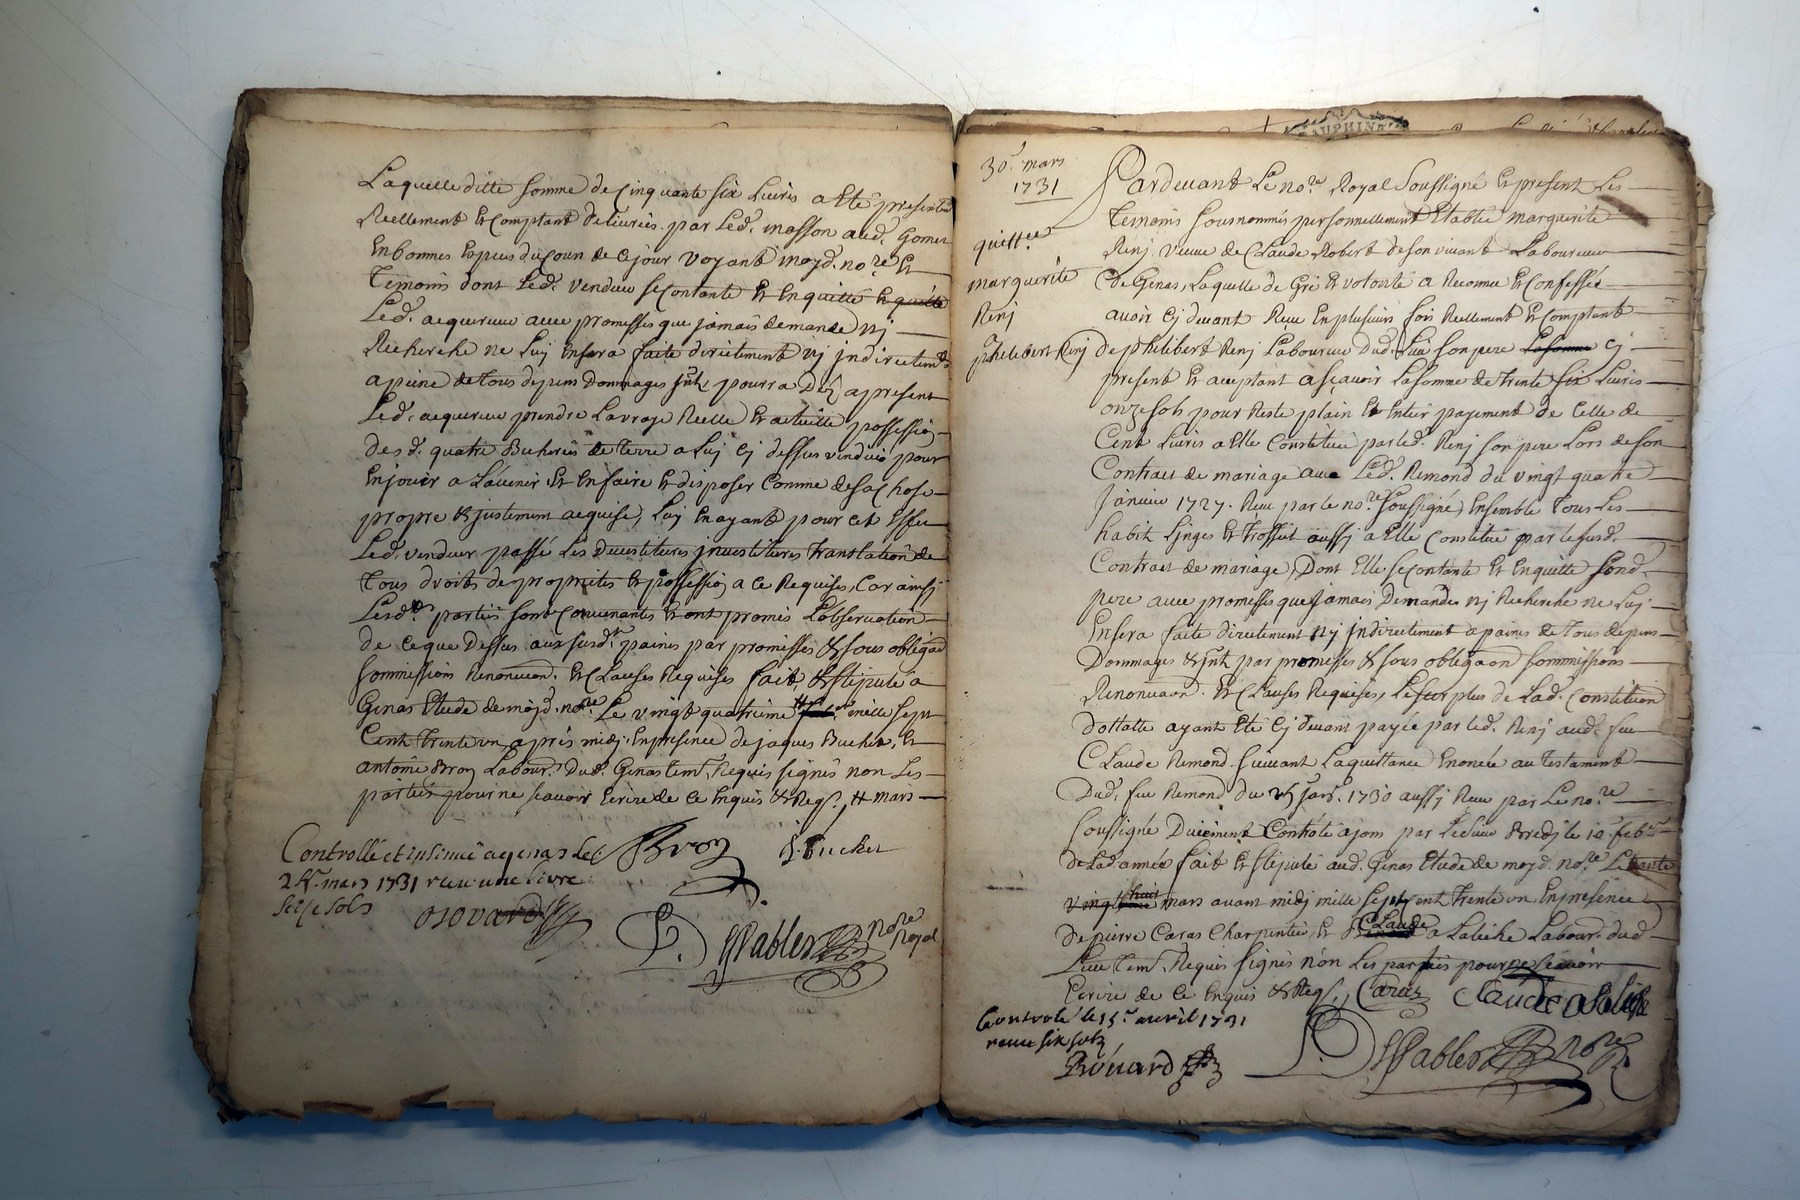 Laquelle ditte somme de Cinquante six Livres a Eté presentem
Reellement Et Comptant delivrées par Led. masson aud. Gomet
En bonnes Especes du Cour de Ce jour voyant moyd. no.re Et
Temoins dont Led. vendeur se contante Et En quitte
Led. acquereur avec promesses que jamais demande nj
Recherche ne Luy En sera faite directement nj jndirectem.t
a peine de tous depens Dommages jnt. pourra Dez a present
Led. acquereur prendre La vraye Reelle Et actuelle possession
des d. quatre Bicherées de terre a Luj Cj dessus vendues pour
En jouir a L'avenir Et En faire Et disposer Comme de sa Chose
propre & justement acquise, Luj En ayant pour cet Effet
Led. vendeur passé Les Devestitures jnvestitures Translation de
Tous droits de proprietés Et possession a Ce Requises, Car ainsj
Lesd. parties sont Convenantes Et ont promis L'observation
de Ce que Dessus aux susd. paines par promesses & sous obligaon
sommissions Renonciaon. Et Clauses Requises fait & stipulé a
Genas Etude de moyd. no.re Le vingt quatrieme # mille sept
Cent Trente un apres midj En presence de jaques Bucher, Et
antoine Bron Labour. Dud. Genas Tem. Requis signés non Les
parties pour ne scavoir Ecrire de Ce Enquis & Reqs. # mars
Bron J. Bucher
Controllé et insinué a genas Le
24. mars 1731 receu une livre
seize sols
no.re Royal
DAUPHIN
30. mars
1731
quitt.ce
marguerite
Renj
philebert Renj
Pardevant Le no.re Royal Soussigné Et present Les
Temoins sousnommés personnellement Etablie marguerite
Renj veuve de Claude Robert de son vivant Laboureur
de Genas, Laquelle de Gré Et volonté a Reconnu Et Confessé
avoir Cj devant Receu En plusieurs fois Reellement Et Comptant
de philibert Renj Laboureur Dud. Lieu son pere Cj
present Et acceptant a sçavoir La somme de trente six Livres
onze sols pour Reste plain Et Entier payement de Celle de
Cent Livres a Elle Constituée par led. Renj son pere Lors de son
Contract de mariage avec Led. Remond du vingt quatre
Janvier 1727. Receu par le no.re soussigné, Ensemble Tous Les
habits Linges Et Trossel aussj a Elle Constitué par le susd.
Contract de mariage, Dont Elle se contante Et En quitte sond.
pere avec promesses que jamais Demande nj Recherche ne Luj
En sera faite directement nj jndirectement a paines de Tous depens
Dommages & jnt. par promesses & sous obligaon sommissions
Renonciaon. Et Clauses Requises, Le surplus de Lad. Constitution
dottalle ayant Eté Cj devant payée par led. Renj aud. feu
Claude Remond suivant La quittance Enoncée au Testament
Dud. feu Remond du 25 janv. 1730 aussj Receu par Le no.re
soussigné Duëment Contrôlé a jons par Le sieur Bredj le 10. feb.
de Lad. année fait Et stipulé aud. Genas Etude de moyd. no.re Le trente
mars avant midj mille sept Cent Trente un En presence
De pierre Caras Charpentier, Et Claude a Labeiche Labour. dud.
Lieu Tem. Requis signés non Les parties pour ne scavoir
Ecrire de Ce Enquis & Reqs.
Controlé le 15. avril 1731
receu six solz
Rouard